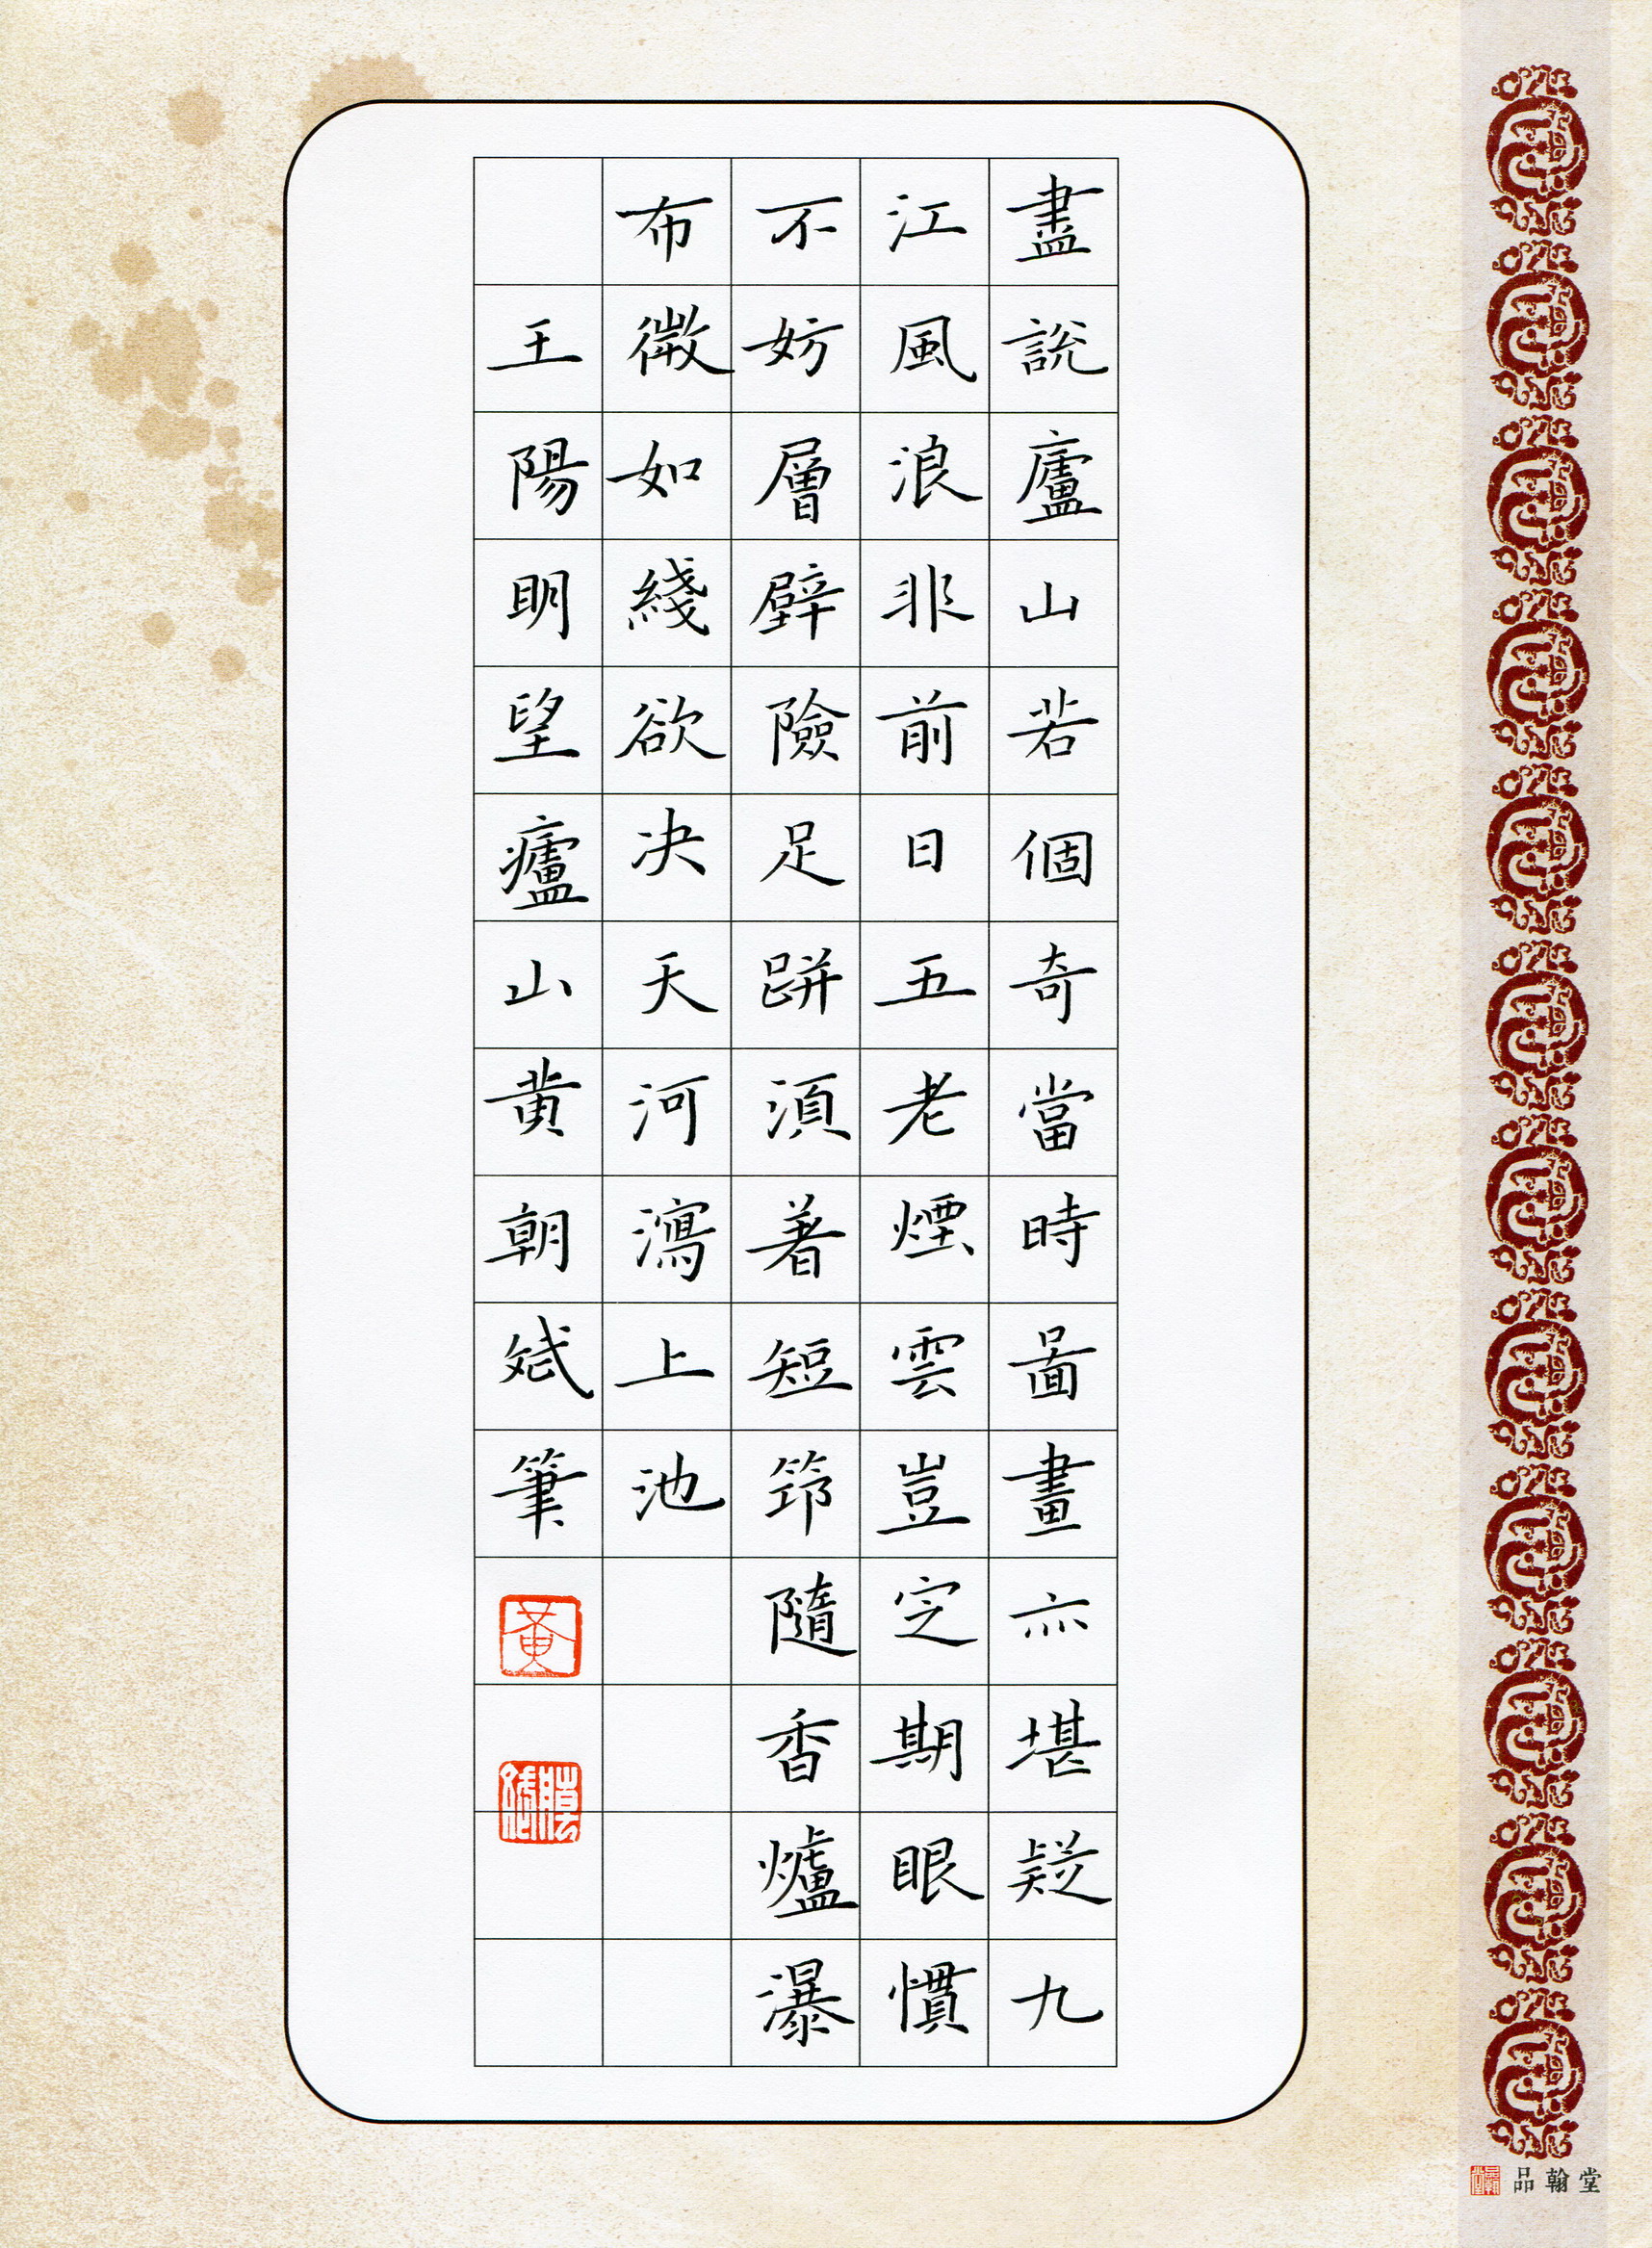 盡說廬山若個奇當時啚畫亦堪疑九
江風浪非前日五老煙雲豈定期眼慣
不妨層壁險足跰湏著短筇隨香爐瀑
布微如綫欲决天河瀉上池
王陽明望廬山黄朝斌筆
黄
品翰堂